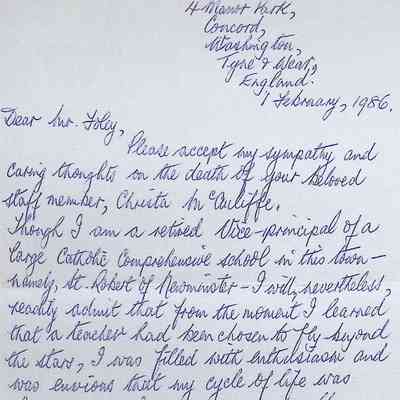 4 Manor Park,
Concord,
Washington,
Tyne & Wear,
England.
1 February, 1986.
Dear Mr. Foley,
Please accept my sympathy and
caring thoughts on the death of your beloved
staff member, Christa McAuliffe.
Though I am a retired Vice-principal of a
large Catholic Comprehensive school in this town –
namely, St. Robert of Newminster – I will, nevertheless,
readily admit that from the moment I learned
that a teacher had been chosen to fly beyond
the stars, I was filled with enthusiasm and
was envious that my cycle of life was